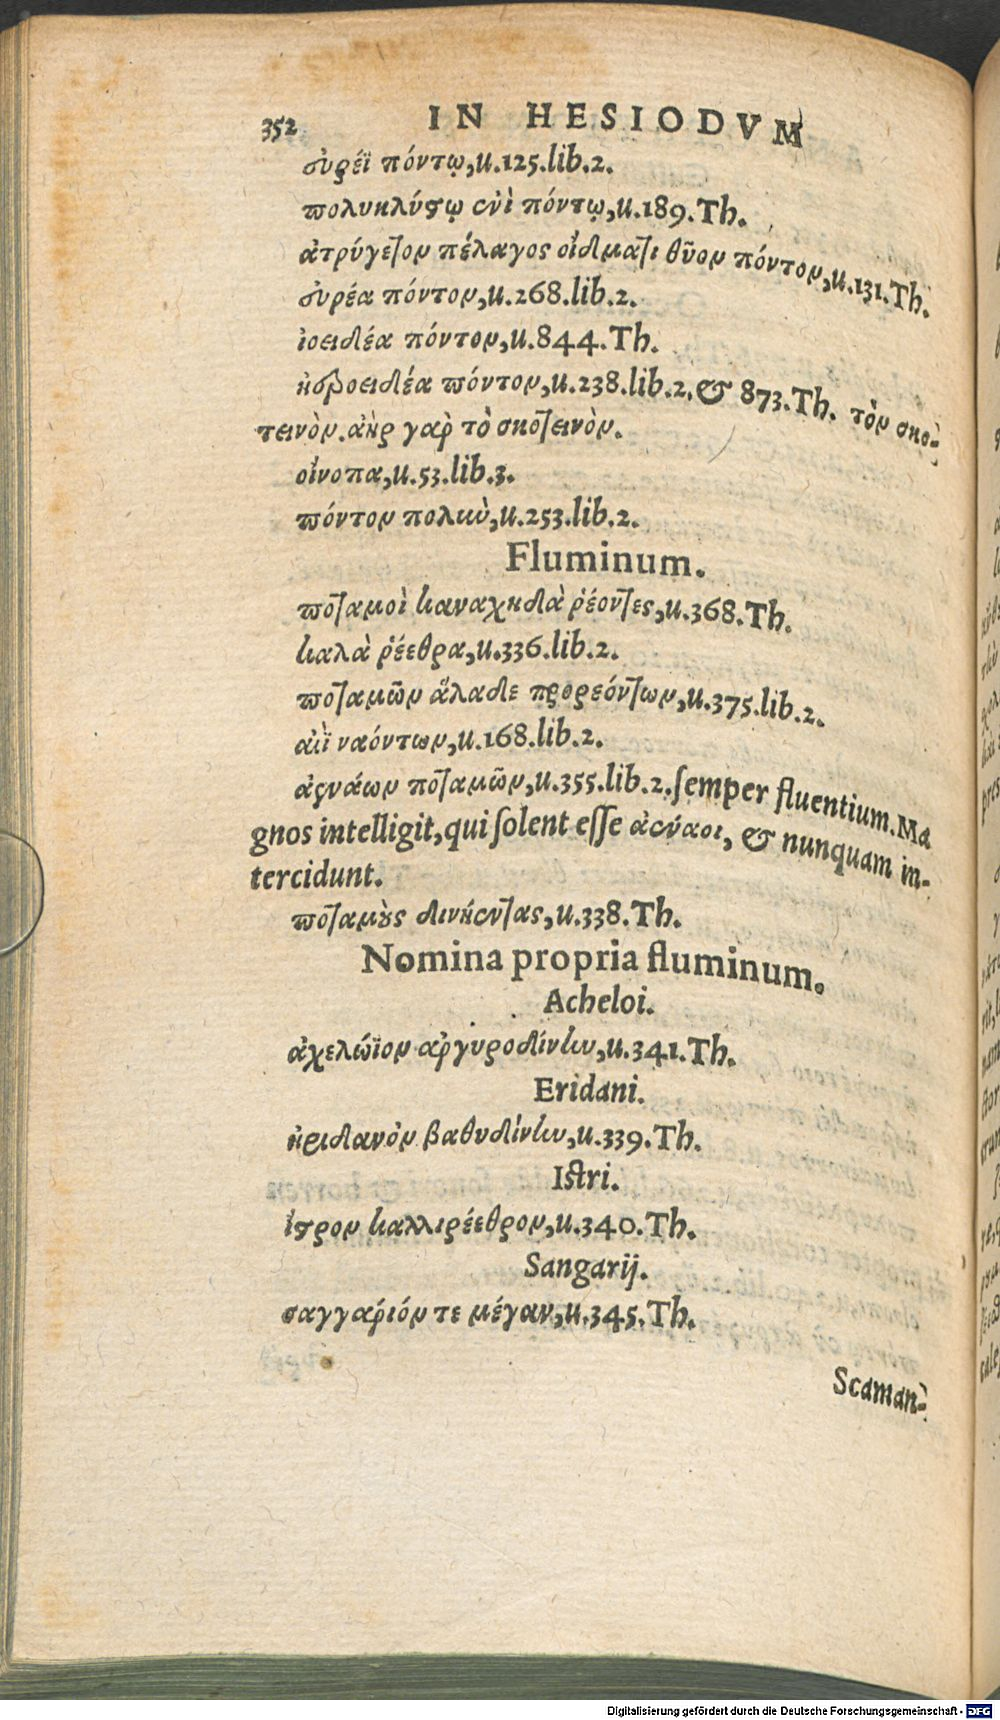 352 IN HESIODVM
εὐρέϊ πόντῳ,u.125.lib.2.
πολυκλύστῳ ἐνὶ πόντῳ,u.189.Th.
ἀτρύγετον πέλαγος οἴδματι θῦον πόντον,u.131.Th.
εὐρέα πόντον,u.268.lib.2.
ἰοειδέα πόντον,u.844.Th.
ἠεροειδέα πόντον,u.238.lib.2.& 873.Th. τὸν σκο-
τεινὸν.ἀὴρ γὰρ τὸ σκοτεινὸν.
οἴνοπα,u.53.lib.3.
πόντον πολιὸν,u.253.lib.2.
Fluminum.
ποταμοὶ καναχηδὰ ῥέοντες,u.368.Th.
καλὰ ῥέεθρα,u.336.lib.2.
ποταμῶν ἅλαδε προρεόντων,u.375.lib.2.
αἰεὶ ναόντων,u.168.lib.2.
ἀενάων ποταμῶν,u.355.lib.2.semper fluentium.Ma
gnos intelligit,qui solent esse ἀένναοι, & nunquam in-
tercidunt.
ποταμοὺς δινήεντας,u.338.Th.
Nomina propria fluminum.
Acheloi.
ἀχελώϊον ἀργυροδίνην,u.341.Th.
Eridani.
ἠριδανὸν βαθυδίνην,u.339.Th.
Istri.
ἴστρον καλλιρέεθρον,u.340.Th.
Sangarij.
σαγγαρίόν τε μέγαν,u.345.Th.
Scaman-
Digitalisierung gefördert durch die Deutsche Forschungsgemeinschaft - DFG